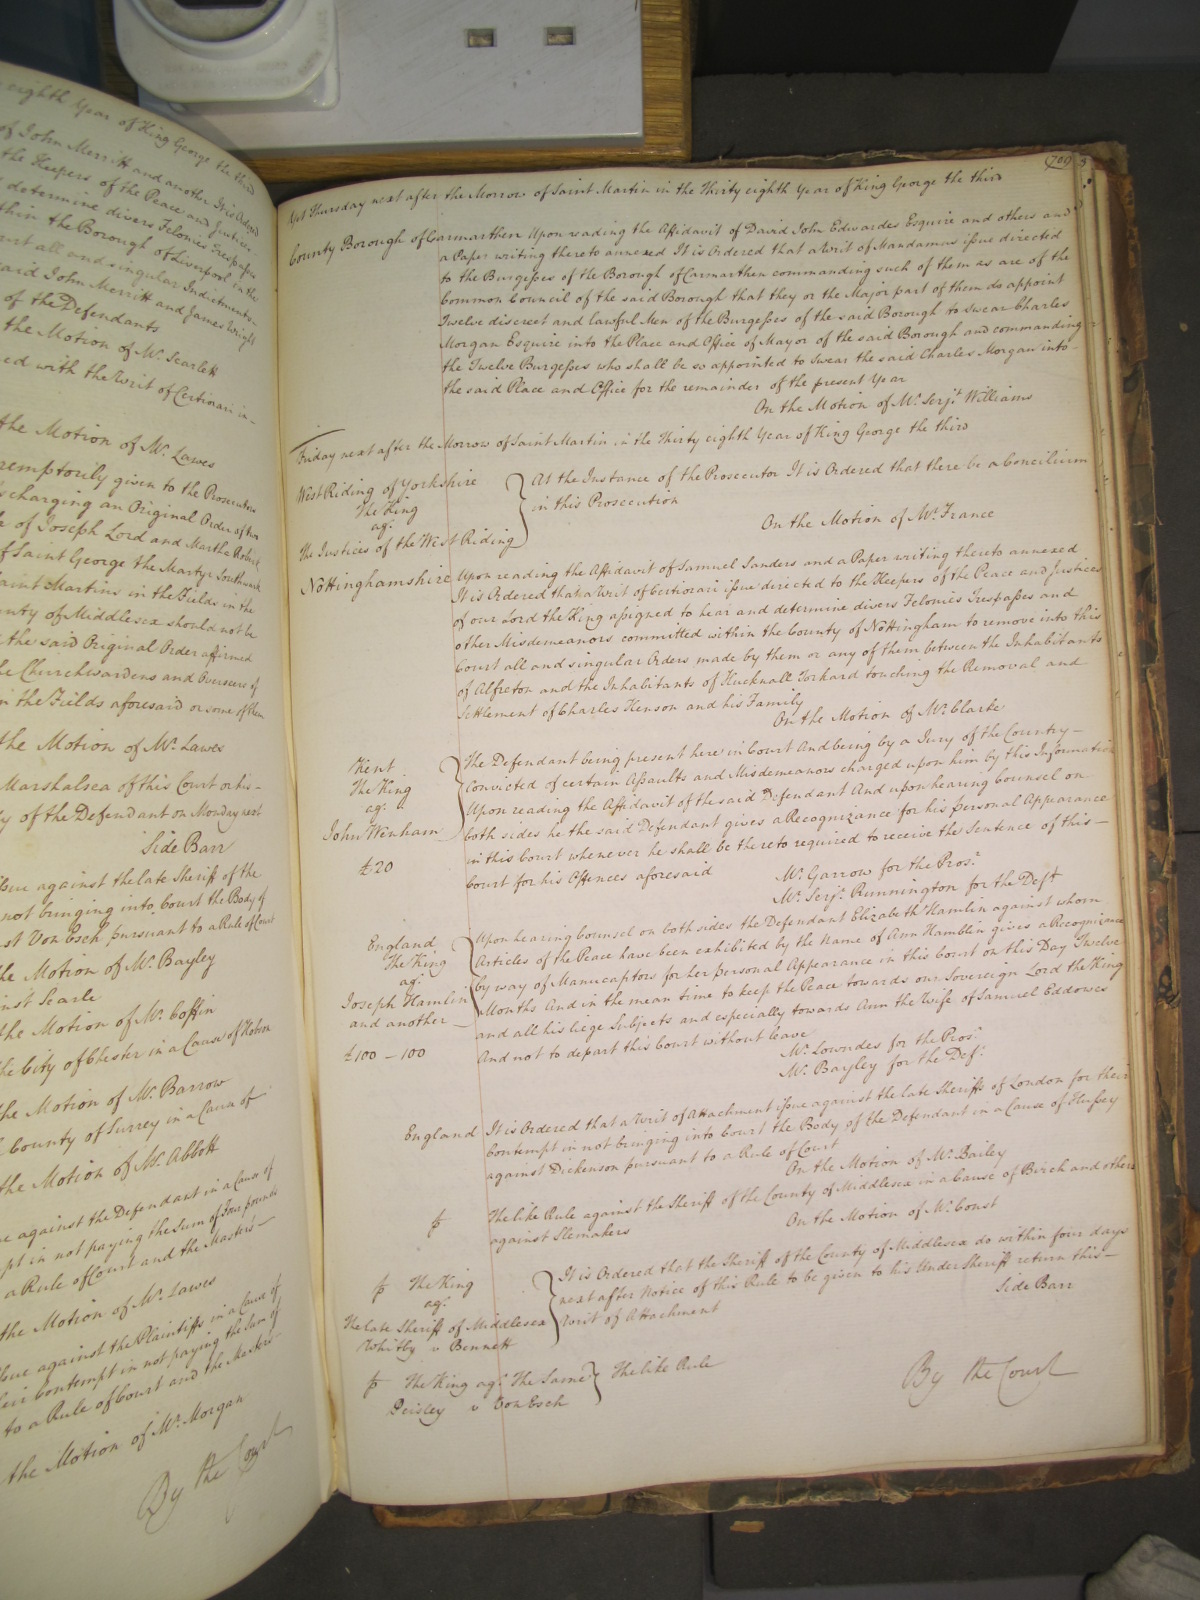 eighth Year of King George the third
of John Merritt and another It is Ordered
the Keepers of the Peace and Justices
determine divers Felonies Trespasses
thin the Borough of Liverpool in the
urt all and singular Indictments
said John Merritt and James Wright
of the Defendants
the Motion of Mr. Scarlett
ed with the Writ of Certiorari in
the Motion of Mr. Lawes
remptorily given to the Prosecutor
scharging an Original Order of two
of Joseph Lord and Martha
f Saint George the Martyr Southwark
aint Martins in the Fields in the
unty of Middlesex should not be
the said Original Order affirmed
he Churchwardens and Overseers of
n the Fields aforesaid or some of them
the Motion of Mr. Lawes
Marshalsea of this Court or his
y of the Defendant on Monday next
Side Barr
issue against the late Sheriff of the
not bringing into Court the Body of
st Von Esch pursuant to a Rule of Court
he Motion of Mr. Bayley
inst Searle
the Motion of Mr. Coffin
he City of Chester in a Cause of Hobson
the Motion of Mr. Barrow
County of Surrey in a Cause of
the Motion of Mr. Abbott
ue against the Defendant in a Cause of
pt in not paying the Sum of Four pounds
a Rule of Court and the Masters
the Motion of Mr. Lawes
ssue against the Plaintiffs in a Cause of
eir Contempt in not paying the Sum of
to a Rule of Court and the Masters
the Motion of Mr. Morgan
By the Court
(709)
Yet Thursday next after the Morrow of Saint Martin in the Thirty eighth Year of King George the third
County Borough of Carmarthen Upon reading the Affidavit of David John Edwardes Esquire and others and
a Paper writing thereto annexed It is Ordered that a Writ of Mandamus issue directed
to the Burgesses of the Borough of Carmarthen commanding such of them as are of the
Common Council of the said Borough that they or the Major part of them do appoint
Twelve discreet and lawful Men of the Burgesses of the said Borough to swear Charles
Morgan Esquire into the Place and Office of Mayor of the said Borough and commanding
the Twelve Burgesses who shall be so appointed to swear the said Charles Morgan into
the said Place and Office for the remainder of the present Year
On the Motion of Mr. Serjt. Williams
Friday next after the Morrow of Saint Martin in the Thirty eighth Year of King George the third
West Riding of Yorkshire
The King
agt.
The Justices of the West Riding
At the Instance of the Prosecutor It is Ordered that there be a Concilium
in this Prosecution
On the Motion of Mr. France
Nottinghamshire Upon reading the Affidavit of Samuel Sanders and a Paper writing thereto annexed
It is Ordered that a Writ of Certiorari issue directed to the Keepers of the Peace and Justices
of our Lord the King assigned to hear and determine divers Felonies Trespasses and
other Misdemeanors committed within the County of Nottingham to remove into this
Court all and singular Orders made by them or any of them between the Inhabitants
of Alfreton and the Inhabitants of Hucknall Torkard touching the Removal and
Settlement of Charles Henson and his Family
On the Motion of Mr. Clarke
Kent
The King
agt.
John Wenham
£20
The Defendant being present here in Court And being by a Jury of the Country
Convicted of certain Assaults and Misdemeanors charged upon him by this Information
Upon reading the Affidavit of the said Defendant And upon hearing Counsel on
both sides he the said Defendant gives a Recognizance for his personal Appearance
in this Court whenever he shall be thereto required to receive the Sentence of this
Court for his Offences aforesaid
Mr. Garrow for the Prosr.
Mr. Serjt. Runnington for the Deft.
England
The King
agt.
Joseph Hamlin
and another
£100 – 100
Upon hearing Counsel on both sides the Defendant Elizabeth Hamlin against whom
Articles of the Peace have been exhibited by the Name of Ann Hamblen gives a Recognizance
by way of Manucaptors for her personal Appearance in this Court on this Day Twelve
Months And in the mean time to keep the Peace towards our Sovereign Lord the King
and all his liege Subjects and especially towards Ann the Wife of Samuel Eddowes
And not to depart this Court without leave
Mr. Lowndes for the Prosr.
Mr. Bayley for the Deft.
England It is Ordered that a Writ of Attachment issue against the late Sheriffs of London for their
Contempt in not bringing into Court the Body of the Defendant in a Cause of Hussey
against Dickenson pursuant to a Rule of Court
On the Motion of Mr. Bailey
The like Rule against the Sheriff of the County of Middlesex in a Cause of Birch and others
against Slemakers
On the Motion of Mr. Const
The King
agt.
The late Sheriff of Middlesex
Whitby v Bennett
It is Ordered that the Sheriff of the County of Middlesex do within four days
next after Notice of this Rule to be given to his Under Sheriff return this
Writ of Attachment
Side Barr
The King agt. The Same
Peisley v Von Esch
The like Rule
By the Court